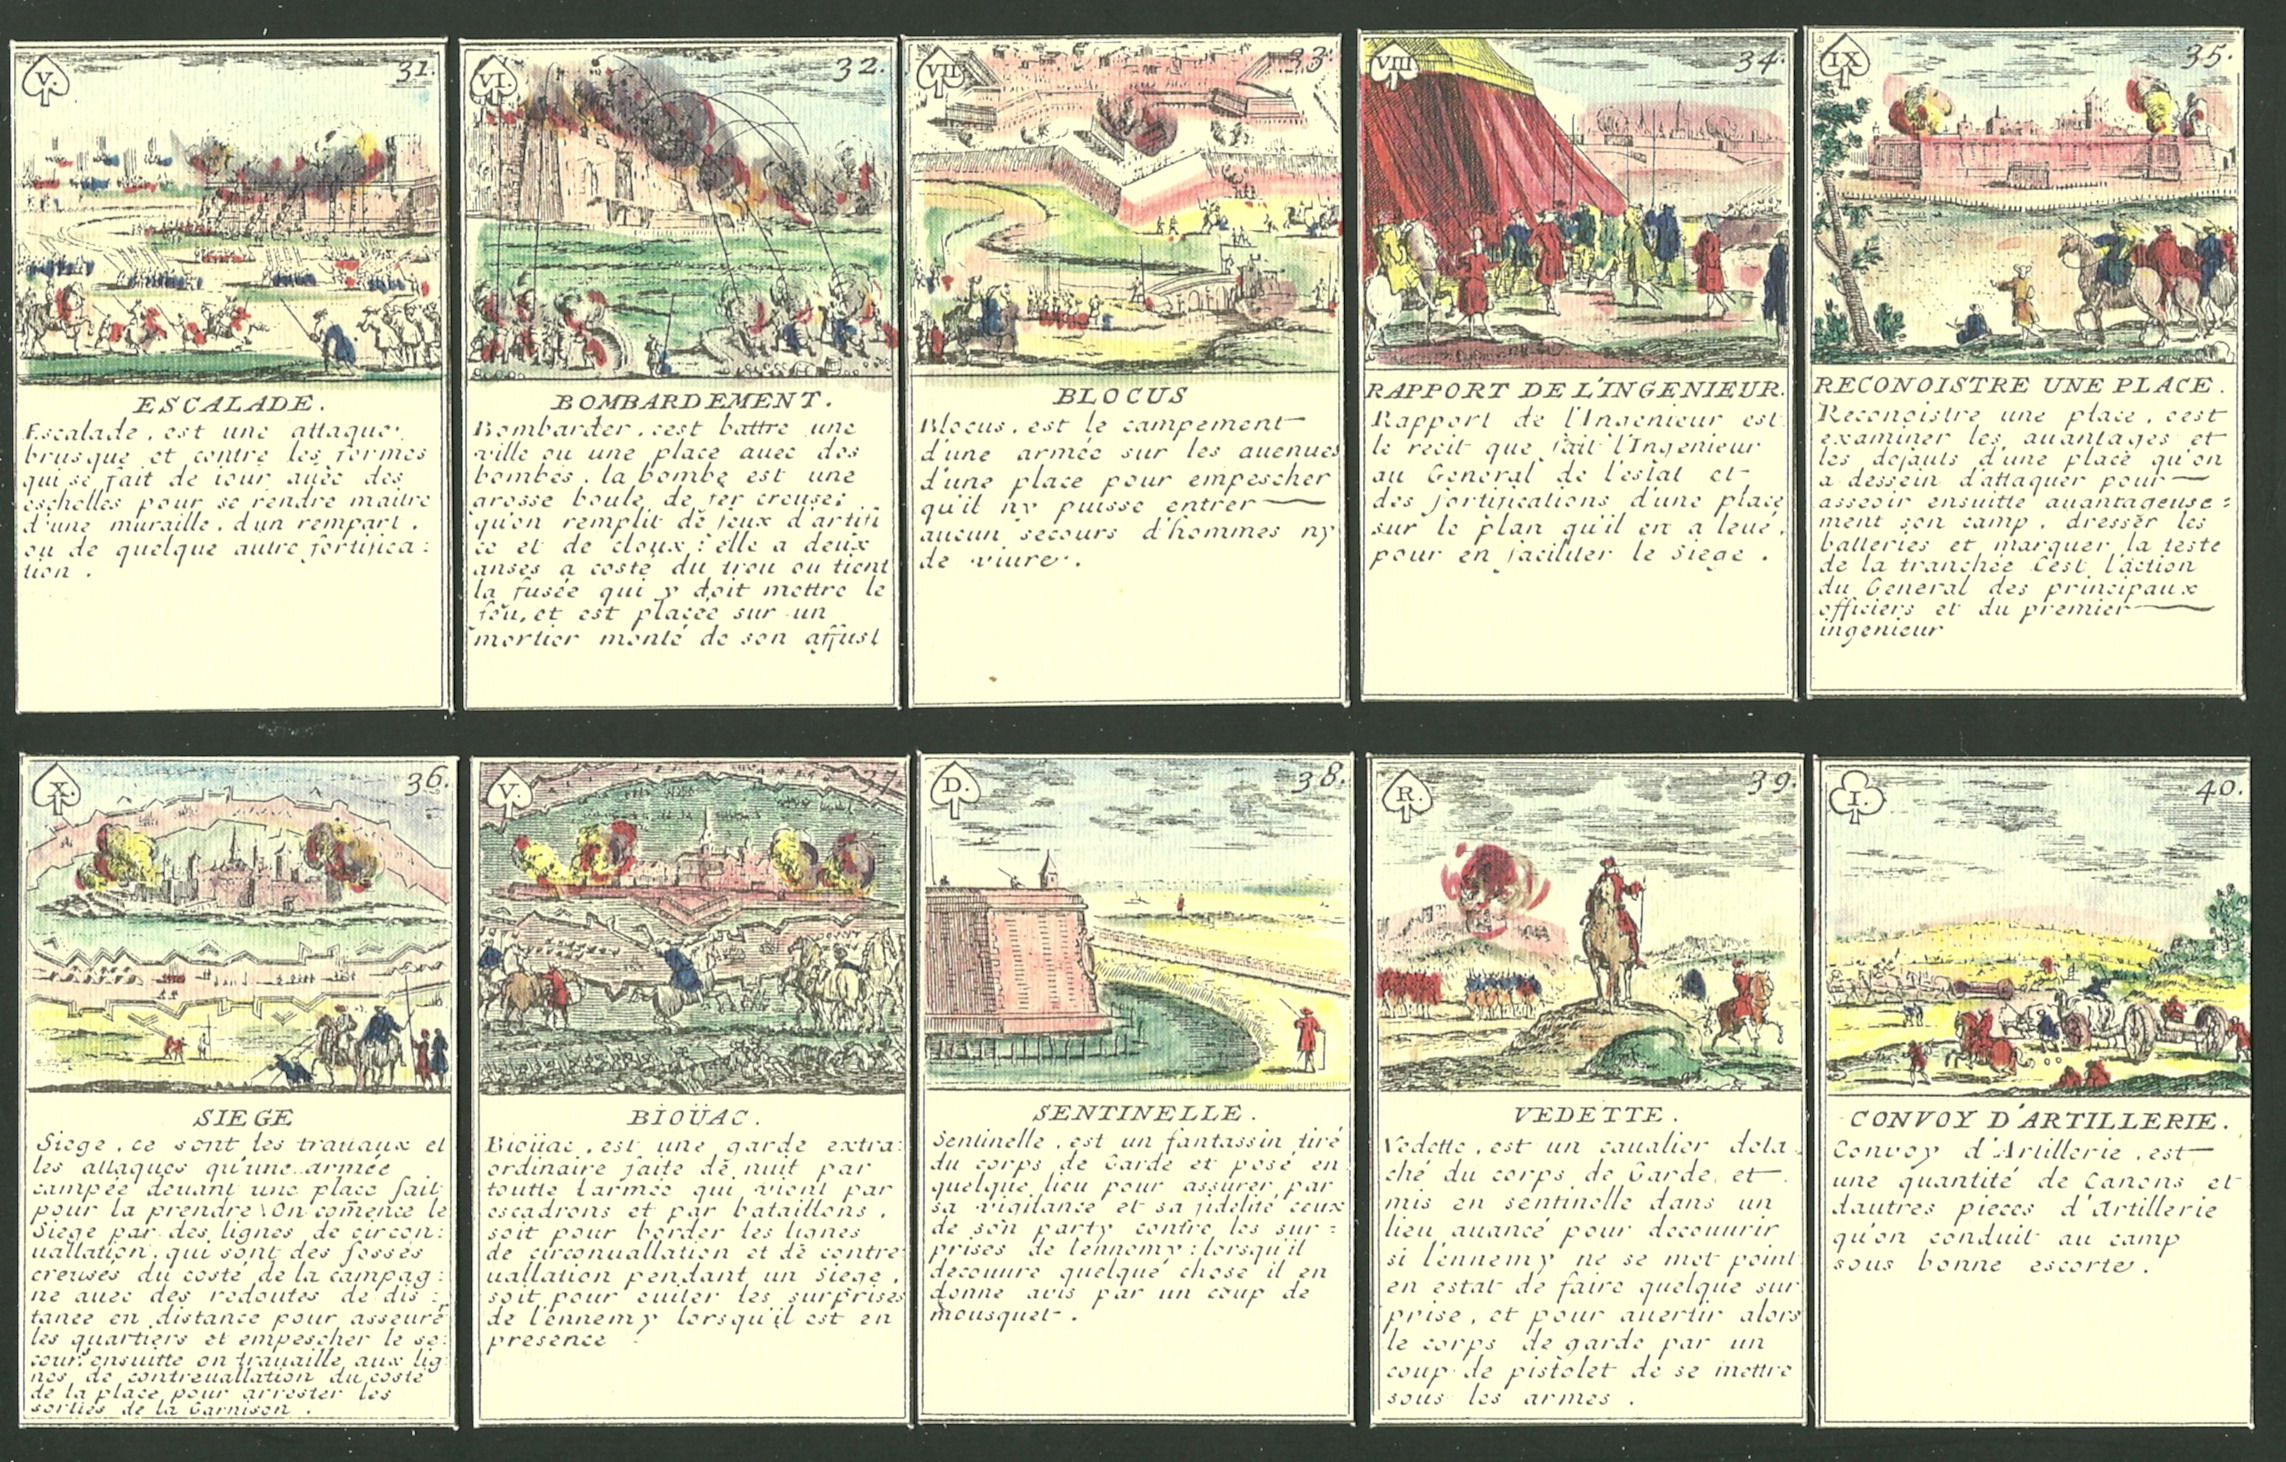 V. 31.
ESCALADE.
Escalade, est une attaque
brusque et contre les formes
qui se fait de iour auec des
eschelles pour se rendre maitre
d'une muraille, dun rempart,
ou de quelque autre fortifica:
tion.
VI 32.
BOMBARDEMENT.
Bombarder, cest battre une
ville ou une place auec des
bombes, la bombe est une
grosse boule de fer creuse;
qu'on remplit de feux d'artifi
ce et de cloux: elle a deux
anses a costé du trou ou tient
la fusée qui y doit mettre le
feu, et est placée sur un
mortier monté de son affust
VII 33.
BLOCUS
Blocus, est le campement
d'une armée sur les auenues
d'une place pour empescher
qu'il ny puisse entrer
aucun secours d'hommes ny
de viure.
VIII 34.
RAPPORT DE L'INGENIEUR.
Rapport de l'Ingenieur est
le recit que fait l'Ingenieur
au General de l'estat et
des fortifications d'une place
sur le plan qu'il en a leué,
pour en faciliter le siege.
IX 35.
RECONOISTRE UNE PLACE.
Reconoistre une place, cest
examiner les auantages et
les defauts d'une place qu'on
a dessein d'attaquer pour
asseoir ensuitte auantageuse:
ment son camp, dresser les
batteries et marquer la teste
de la tranchée c'est l'action
du General des principaux
officiers et du premier
ingenieur
X. 36.
SIEGE
Siege, ce sont les trauaux et
les attaques qu'une armée
campée deuant une place fait
pour la prendre On comence le
Siege par des lignes de circon:
uallation, qui sont des fossés
creusés du costé de la campag:
ne auec des redoutes de dis:
tance en distance pour asseuré
les quartiers et empescher le se:
cour, ensuitte on trauaille aux lig:
nes de contreuallation du costé
de la place pour arrester les
sorties de la Garnison.
V. 37
BIOÜAC.
Bioüac, est une garde extra:
ordinaire faite de nuit par
toutte l'armée qui vient par
escadrons et par bataillons,
soit pour border les lignes
de circonuallation et de contre
uallation pendant un siege,
soit pour euiter les surprises
de l'ennemy lorsqu'il est en
presence
D. 38.
SENTINELLE.
Sentinelle, est un fantassin tiré
du corps de Garde et posé en
quelque lieu pour assurer par
sa vigilance et sa fidelité ceux
de son party contre les sur:
prises de l'ennemy: lorsqu'il
decouure quelque chose il en
donne avis par un coup de
mousquet.
R. 39.
VEDETTE.
Vedette, est un caualier deta
ché du corps de Garde, et
mis en sentinelle dans un
lieu auancé pour decouurir
si l'ennemy ne se met point
en estat de faire quelque sur
prise, et pour auertir alors
le corps de garde par un
coup de pistolet de se mettre
sous les armes.
I. 40.
CONVOY D'ARTILLERIE.
Convoy d'Artillerie, est
une quantité de Canons et
dautres pieces d'Artillerie
qu'on conduit au camp
sous bonne escorte.